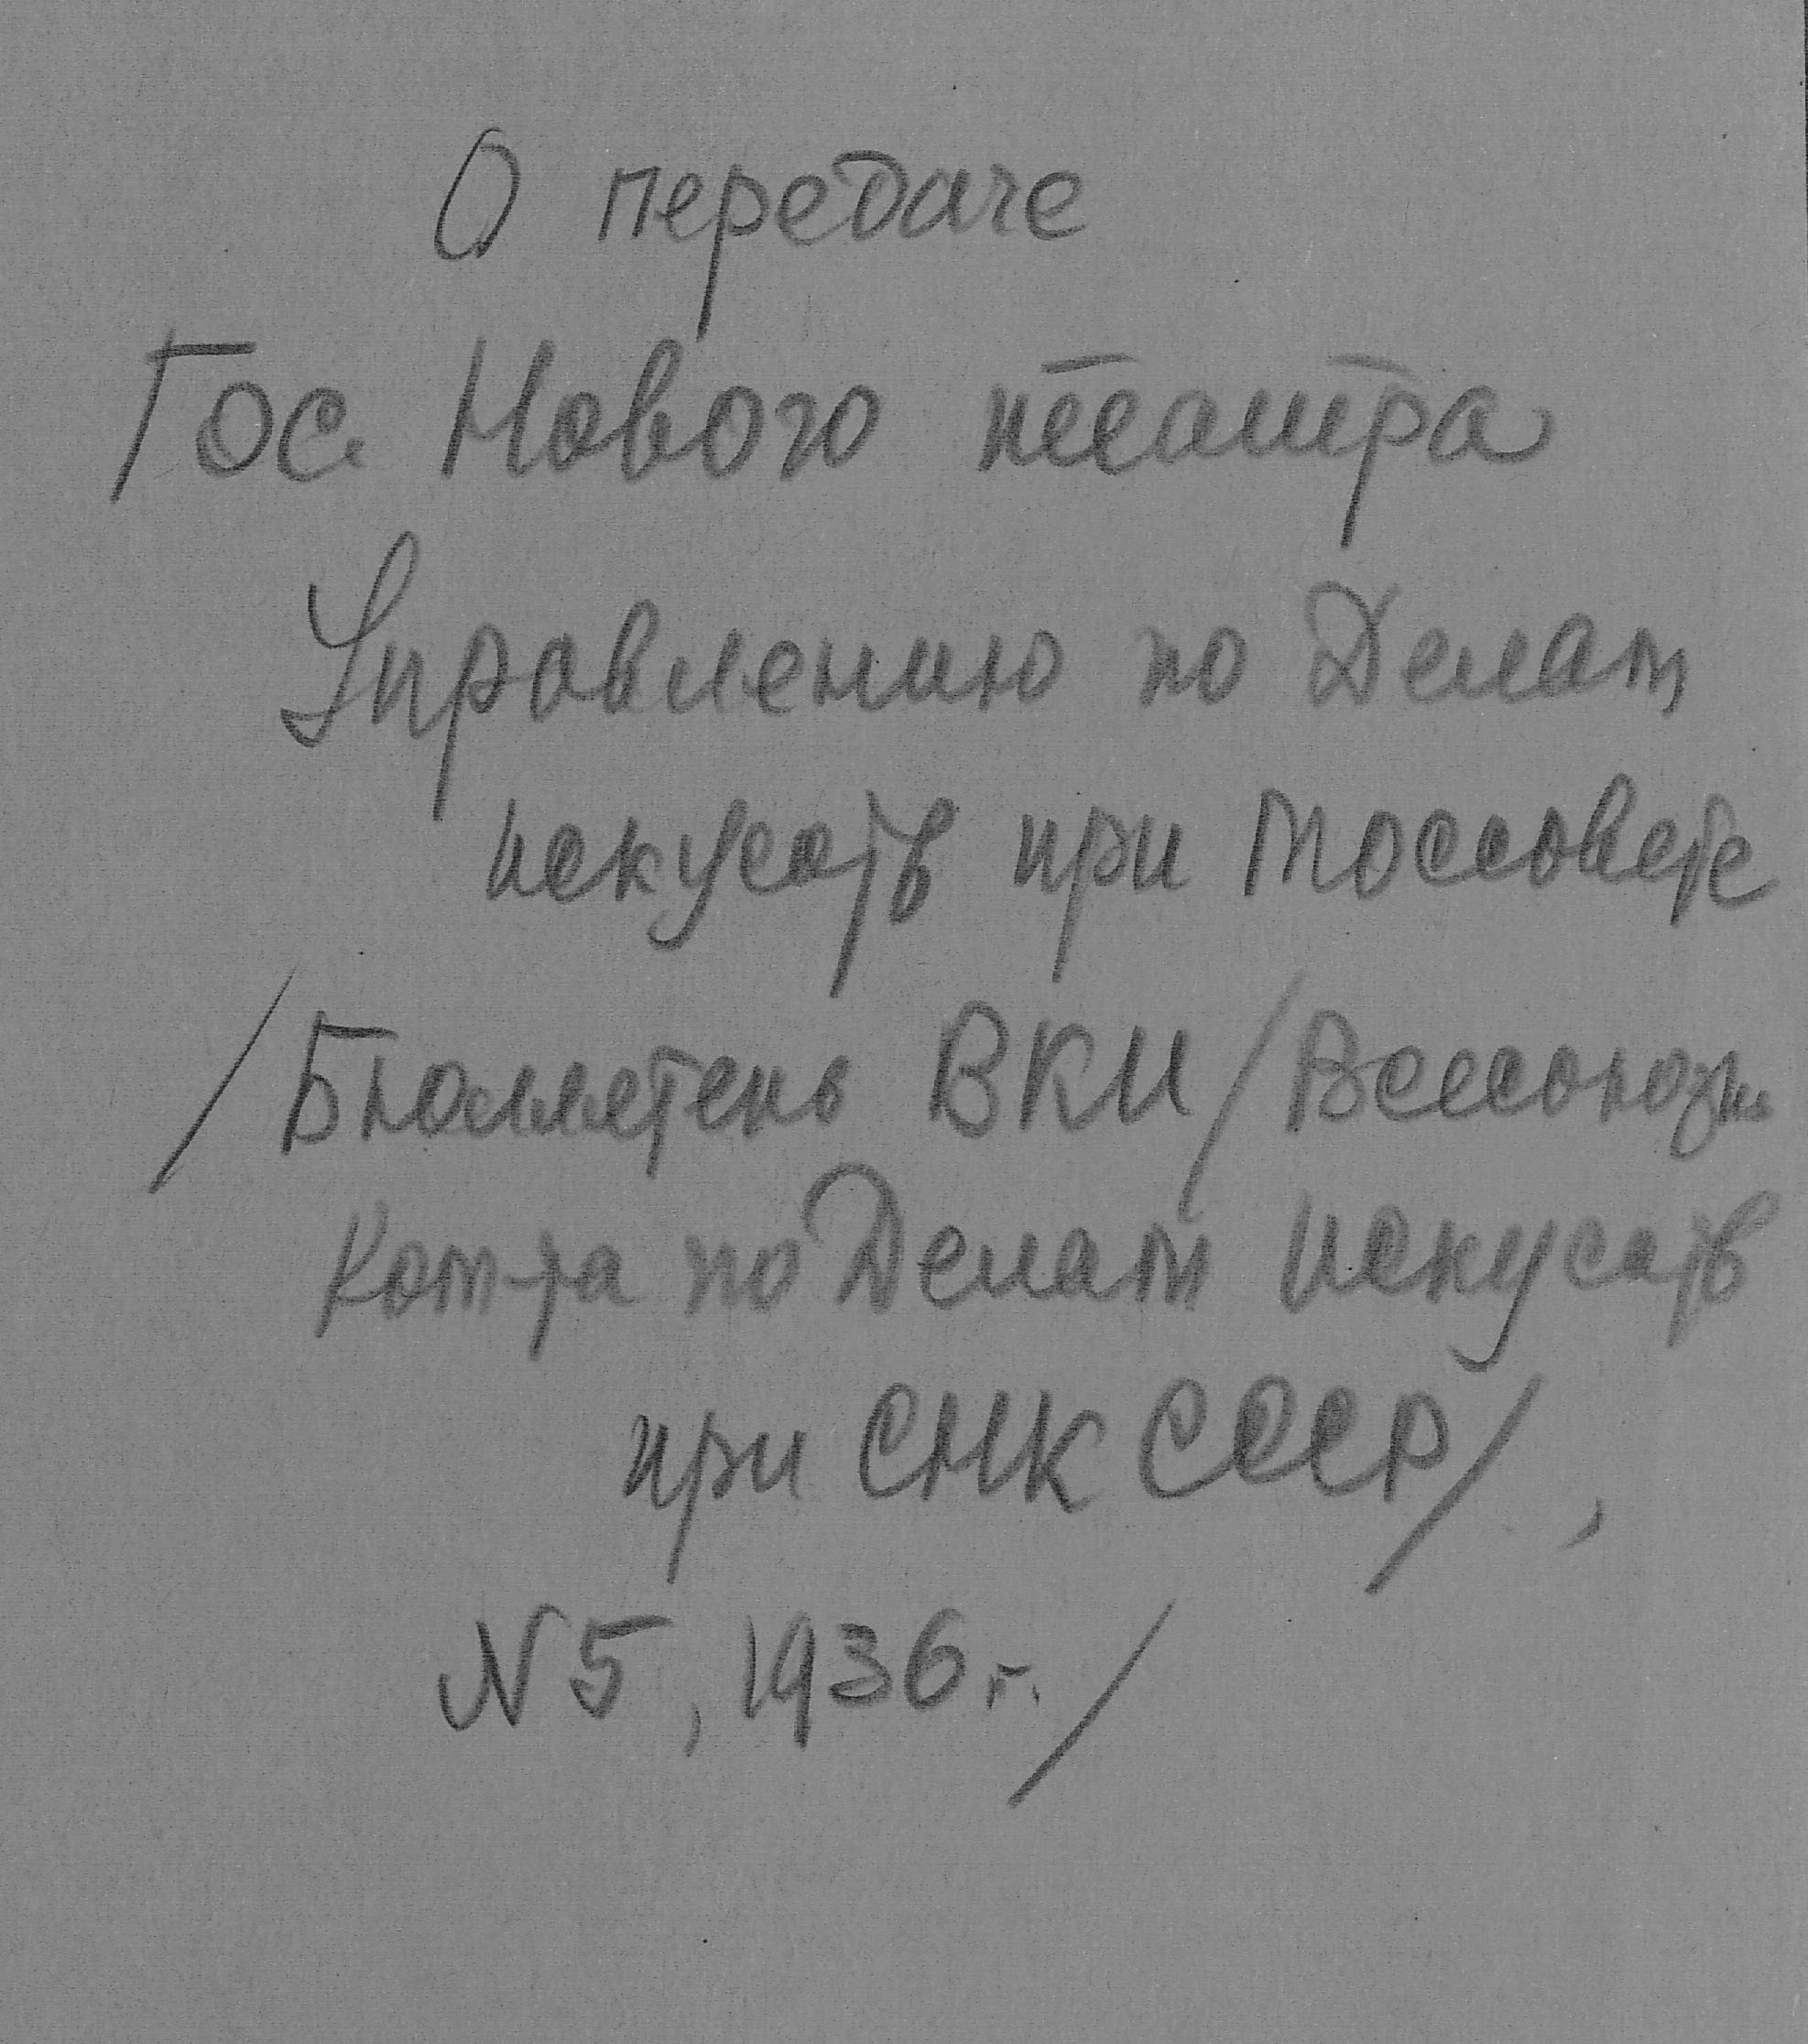 О передаче
Гос. Нового театра
Управлению по Делам
искусств при Моссовете
/Бюллетень ВКИ/Всесоюзн.
Ком-та по Делам Искусств
при СНК СССР/,
N 5, 1936 г./